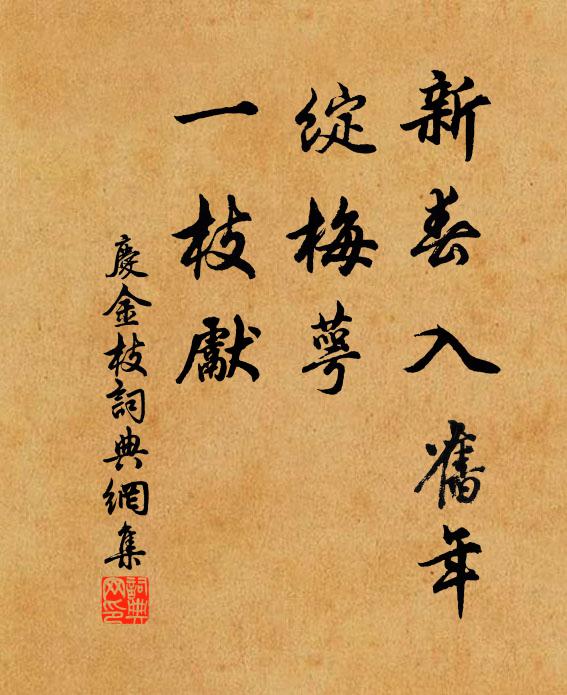 新春入舊年
綻梅萼
一枝獻
慶金枝詞典網集
詞典
网印